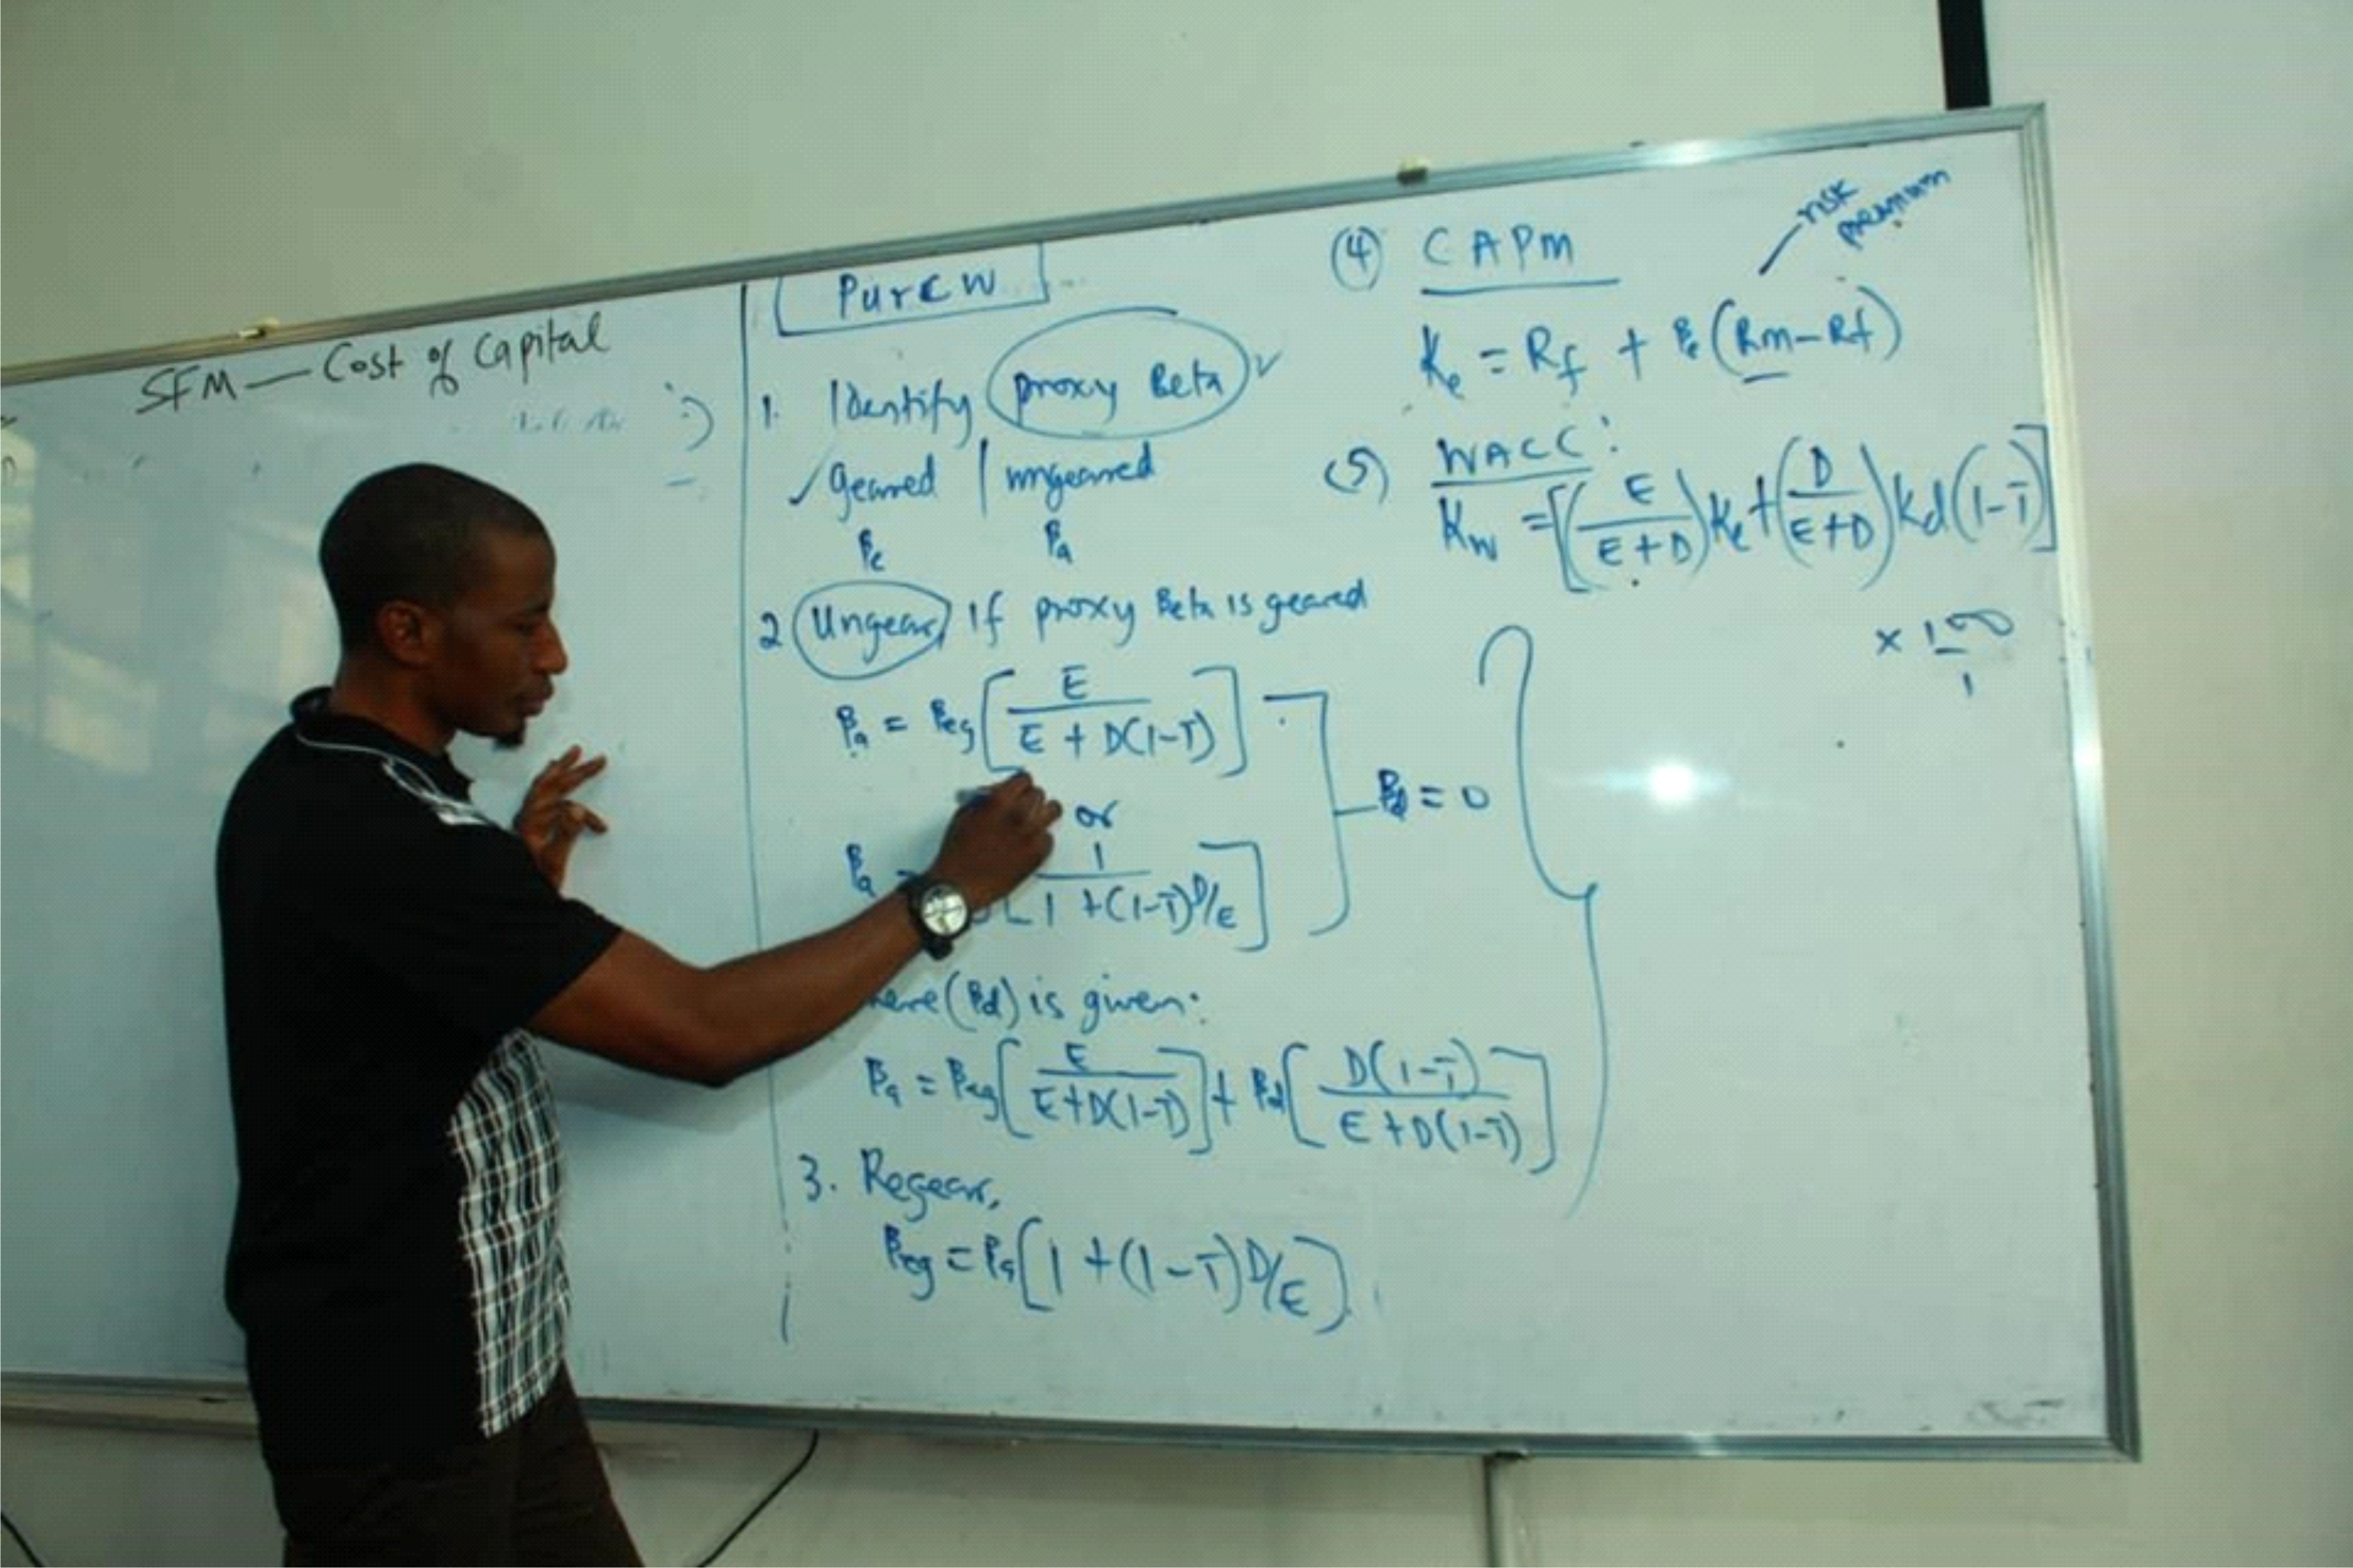 SFM — Cost of Capital
PurCW
1. Identify proxy Beta ✓
✓ geared | ungeared
βe βa
2 Ungear, if proxy Beta is geared
βa = βeg [ E / E + D(1-T) ]
or
βa = [ 1 / 1 + (1-T) D/E ]
βd = 0
(βd) is given:
βa = βeg [ E / E+D(1-T) ] + βd [ D(1-T) / E+D(1-T) ]
3. Regear,
βeg = βa [ 1 + (1-T) D/E ]
(4) CAPM
risk
premium
Ke = Rf + βe (Rm-Rf)
(5) WACC:
Kw = [ ( E / E+D ) Ke + ( D / E+D ) Kd (1-T) ]
× 100 / 1